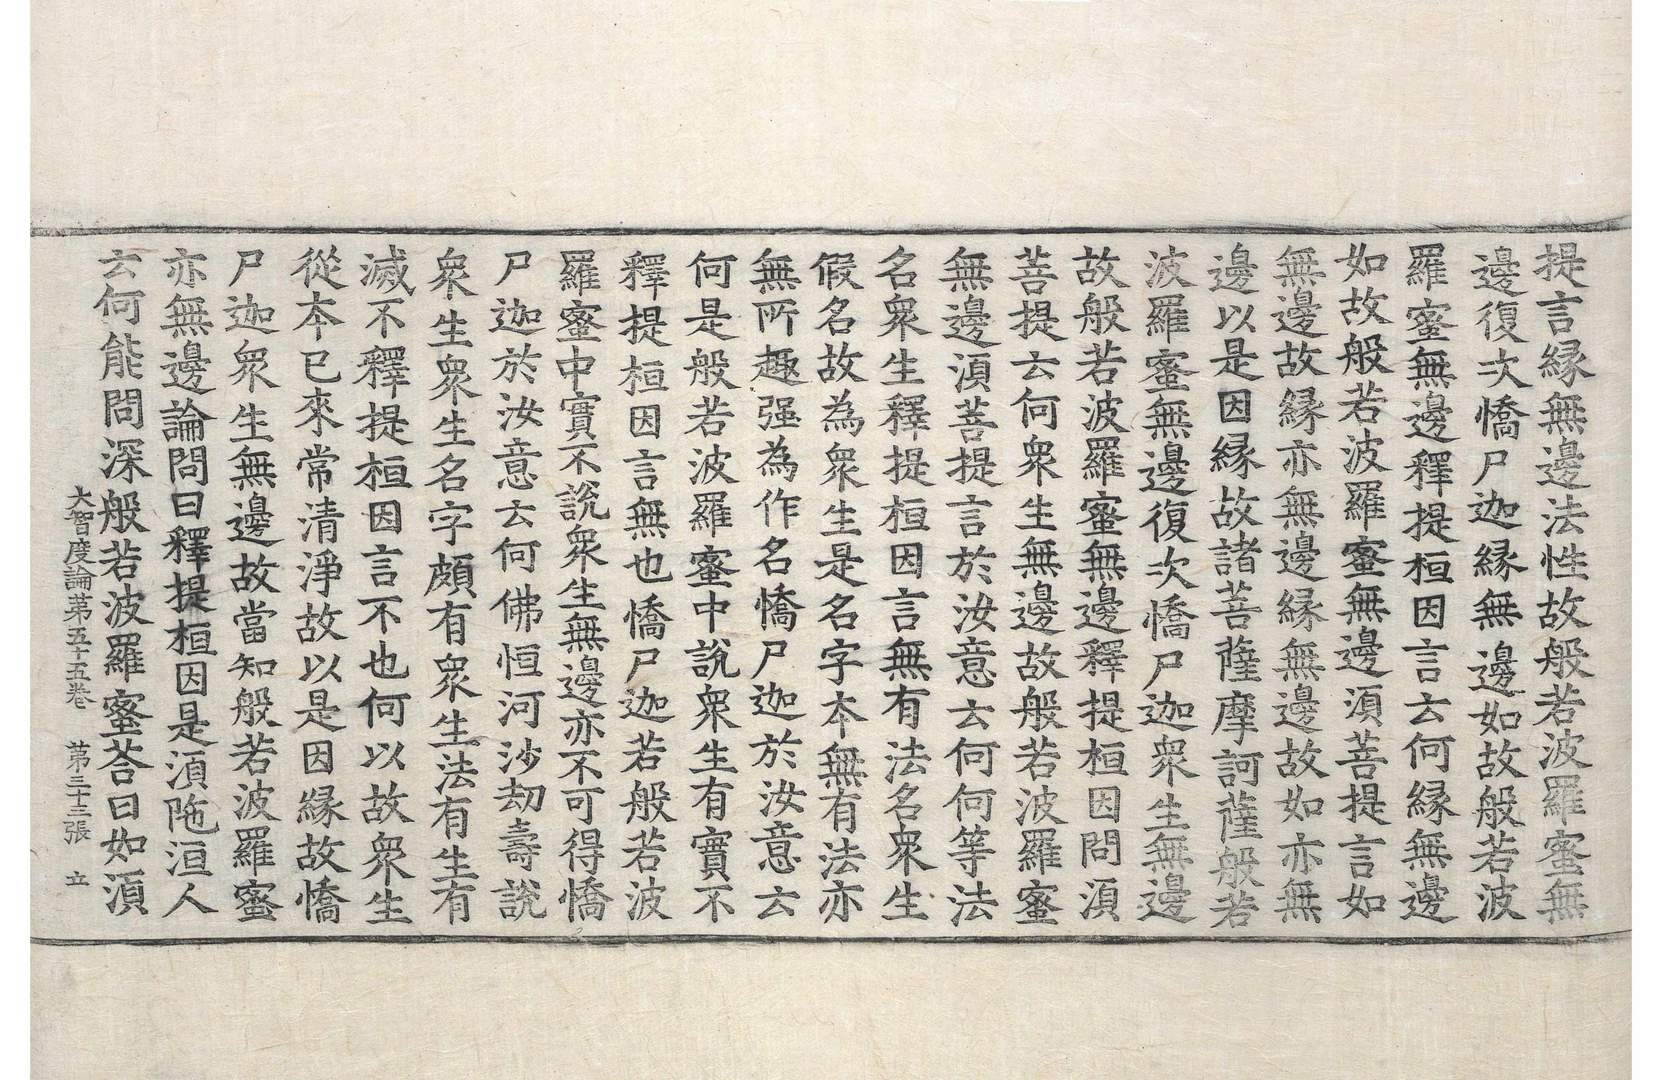 提言縁無邊法性故般若波羅蜜無
邊復次憍尸迦縁無邊如故般若波
羅蜜無邊釋提桓因言云何縁無邊
如故般若波羅蜜無邊湏菩提言如
無邊故縁亦無邊縁無邊故如亦無
邊以是因縁故諸菩薩摩訶薩般若
波羅蜜無邊復次憍尸迦衆生無邊
故般若波羅蜜無邊釋提桓因問湏
菩提云何衆生無邊故般若波羅蜜
無邊湏菩提言於汝意云何何等法
名衆生釋提桓因言無有法名衆生
假名故為衆生是名字本無有法亦
無所趣强為作名憍尸迦於汝意云
何是般若波羅蜜中說衆生有實不
釋提桓因言無也憍尸迦若般若波
羅蜜中實不說衆生無邊亦不可得憍
尸迦於汝意云何佛恒河沙劫壽說
衆生衆生名字頗有衆生法有生有
滅不釋提桓因言不也何以故衆生
從本已來常清淨故以是因縁故憍
尸迦衆生無邊故當知般若波羅蜜
亦無邊論問曰釋提桓因是湏陁洹人
云何能問深般若波羅蜜荅曰如湏
大智度論苐五十五卷 苐三十三張 立